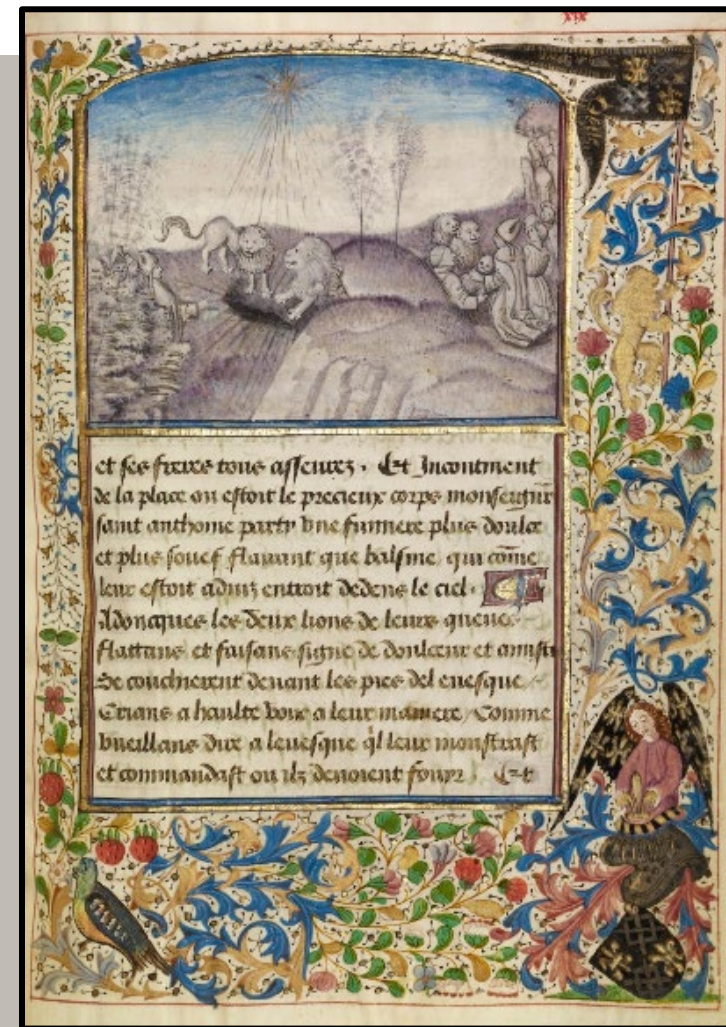 xix
et ses freres tous asseurez . Et Incontinent
de la place ou estoit le precieux corps monseignur
saint anthoine party une fumiere plus doulce
et plus souef flairant que balsme qui cōme
leur estoit aduiz entroit dedens le ciel .
Adoncques les deux lions de leurs queues
flattans et faisans signe de doulceur et amistie
Se coucherent deuant les pies del euesque /
Crians a haulte voix a leur maniere / Comme
vueillans dire a leuesque qͥl leur monstrast
et commandast ou ilz deuoient fouyr Et